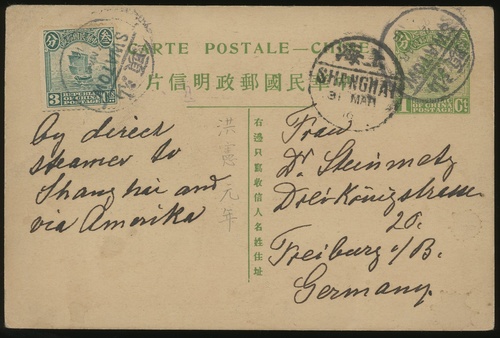 CARTE POSTALE—CHINE
片信明政郵國民華中
3
EMPERIA
OF CHINA POSTAGE
SWATOW
上海
SHANGHAI
31 MA 11
OF CHINA POSTAGE
By direct
steamer to
Shanghai and
via Amerika
洪憲元年
右邊只寫收信人名姓住址
Frau
Dr. Steinmetz
Dreikönigstrasse
20.
Freiburg i/B.
Germany.